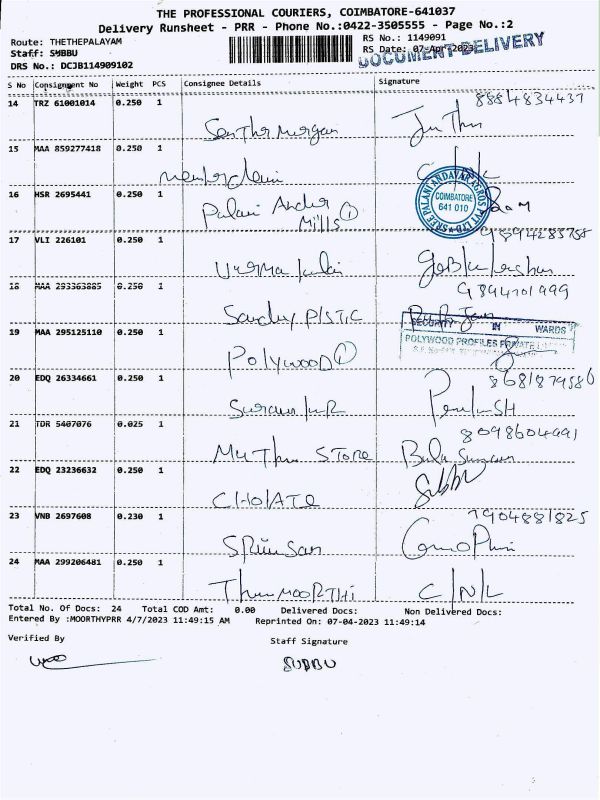 THE PROFESSIONAL COURIERS, COIMBATORE-641037
Delivery Runsheet - PRR - Phone No.:0422-3505555 - Page No.:2
Route: THETHEPALAYAM
RS No.: 1149091
Staff: SUBBU
RS Date: 07-Apr-2023
DOCUMENT DELIVERY
DRS No.: DCJB114909102
S No Consignment No Weight PCS Consignee Details Signature
14 TRZ 61001014 0.250 1
8884834437
15 MAA 859277418 0.250 1
16 HSR 2695441 0.250 1
Palani Andur Mills 1
SREE PALANI ANDAVAR AGROS PVT LTD
COIMBATORE
641 010
17 VLI 226101 0.250 1
9894283758
18 MAA 293363885 0.250 1
9894701999
19 MAA 295125110 0.250 1
Polywood 1
SECURITY IN WARDS
POLYWOOD PROFILES PRIVATE
20 EDQ 26334661 0.250 1
8681879586
21 TDR 5407076 0.025 1
8098604991
Muthu STORE
22 EDQ 23236632 0.250 1
Subbu
23 VNB 2697608 0.230 1
7904881825
24 MAA 299206481 0.250 1
ThuMOORTHI C/N/L
Total No. Of Docs: 24 Total COD Amt: 0.00 Delivered Docs: Non Delivered Docs:
Entered By :MOORTHYPRR 4/7/2023 11:49:15 AM Reprinted On: 07-04-2023 11:49:14
Verified By
Staff Signature
SUBBU